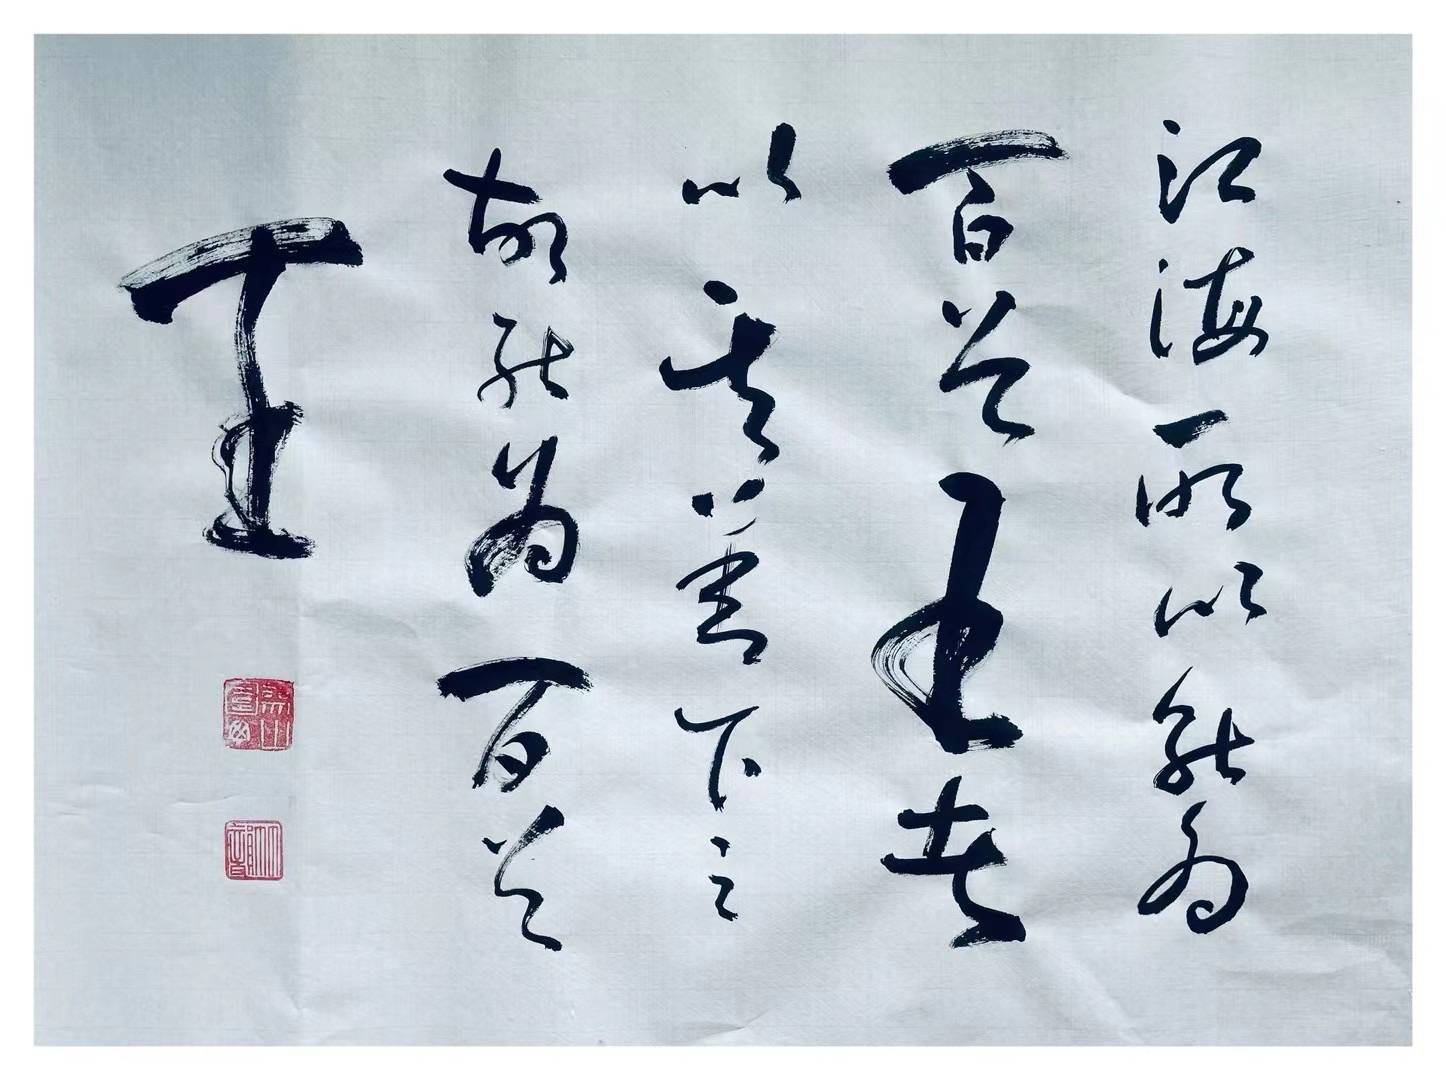 江海所以能为
百谷王者
以其善下之
故能为百谷
王